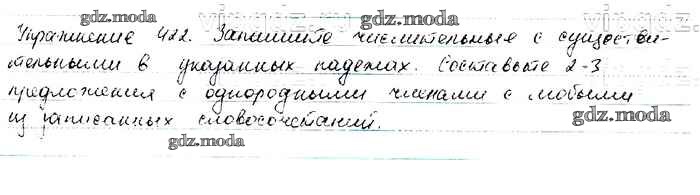 gdz.moda
Упражнение 422. Запишите числительные с существи-
gdz.moda
тельными в указанных падежах. Составьте 2-3
предложения с однородными членами с любыми
gdz.moda
из записанных словосочетаний.
gdz.moda